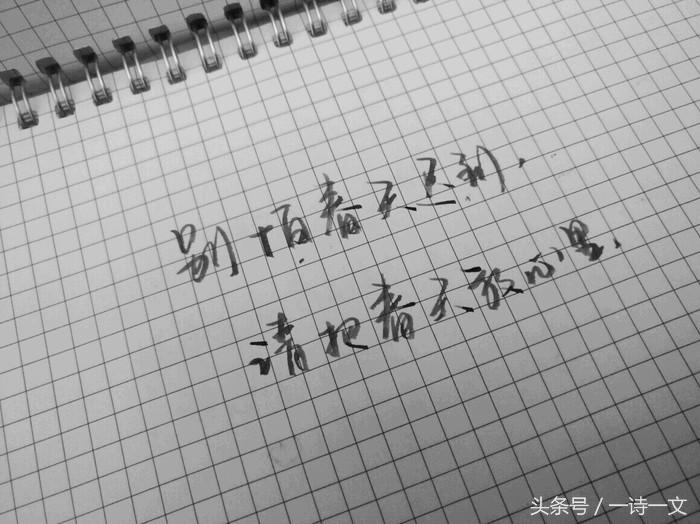 别怕春天迟到，
请把春天放心里，
头条号 / 一诗一文